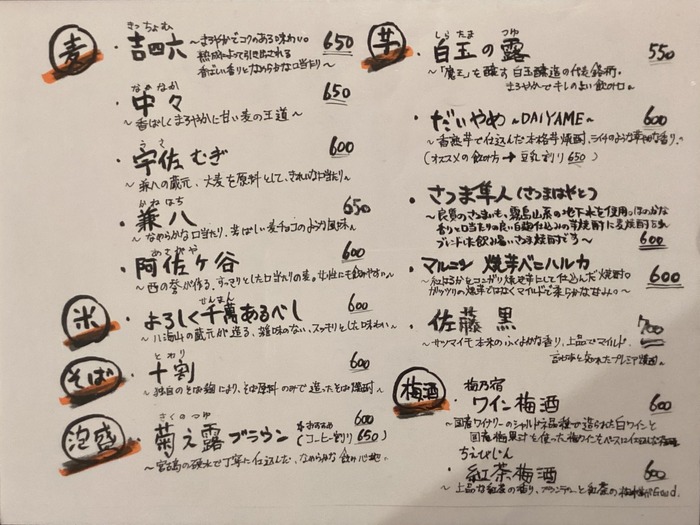 麦
きっちょむ
・吉四六 ~まろやかでコクのある味わい。 650
熟成によって引き出される
香ばしい香りとなめらかな口当たり~
なかなか
・中々 650
~香ばしくまろやかに甘い麦の王道~
うさ
・宇佐むぎ 600
~兼八の蔵元、大麦を原料として、きれいな口当たり~
かねはち
・兼八 650
~なめらかな口当たり、芳ばしい麦チョコのような風味~
あさがや
・阿佐ヶ谷 600
米
せんまん
・よろしく千萬あるべし 600
~八海山の蔵元が造る、雑味のない、スッキリとした味わい~
そば
とわり
・十割 600
~独自のそば麹により、そば原料のみで造ったそば焼酎~
泡盛
きくのつゆ
・菊之露ブラウン 600
おすすめ
(コーヒー割り 650)
~宮古島の硬水で丁寧に仕込んだ、なめらかな飲み心地~
芋
しらたま つゆ
・白玉の露 550
~「魔王」を醸す白玉醸造の代表銘柄。
まろやかでキレのよい飲み口~
・だいやめ ~DAIYAME~ 600
~香熟芋で仕込んだ本格芋焼酎、ライチのような華やかな香り~
(オススメの飲み方→豆乳割り 650)
・さつま隼人(さつまはやと)
~良質のさつまいも、霧島山系の地下水を使用。ほのかな
香りと口当たりの良い白麹仕込みの芋焼酎に麦焼酎を
ブレンドした飲み易いさつま焼酎です~ 600
・マルニシ 焼芋ベニハルカ 600
~紅はるかをコンガリ焼き芋にして仕込んだ焼酎。
ガッツリの焼芋ではなくマイルドで柔らかな甘み。~
・佐藤 黒 700
~サツマイモ本来のふくよかな香り、上品でマイルド
梅酒
梅乃宿
・ワイン梅酒 600
~国産ワイナリーのシャルドネ品種で造られた白ワインと
ちえびじん
・紅茶梅酒 600
~上品な紅茶の香り、ブランデーと紅茶の相性がGood.